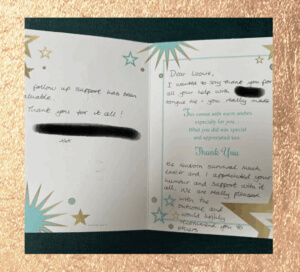 follow up support has been
aluable
Thank you for it all!
Dear
I wanted to say thank you for
all your help with
tongue tie : you really made
This comes with warm wishes
especially for you...
What you did was special
and appreciated too.
Thank You
newborn survival much
easier and I appreciated your
humour and support with it
all. We are really pleased
with the
outcome and
would happily
recommend you to
others